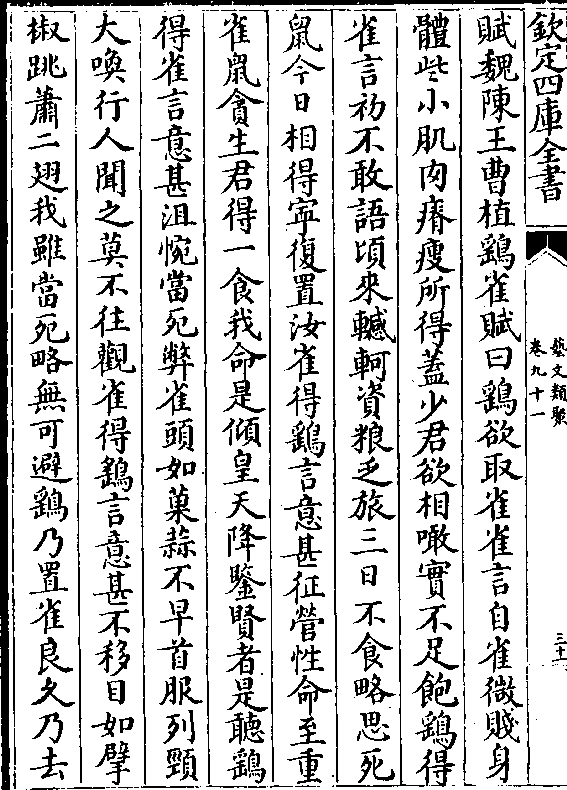 欽定四庫全書
藝文類聚
卷九十一
三十一
賦魏陳王曹植鷂雀賦曰鷂欲取雀雀言自雀微賤身
體些小肌肉瘠瘦所得蓋少君欲相噉實不足飽鷂得
雀言初不敢語頃來轗軻資粮乏旅三日不食略思死
鼠今日相得寧復置汝雀得鷂言意甚征營性命至重
雀鼠貪生君得一食我命是傾皇天降鑒賢者是聽鷂
得雀言意甚沮惋當死弊雀頭如菓蒜不早首服列頸
大喚行人聞之莫不往觀雀得鷂言意甚不移目如擘
椒跳蕭二翅我雖當死略無可避鷂乃置雀良久乃去